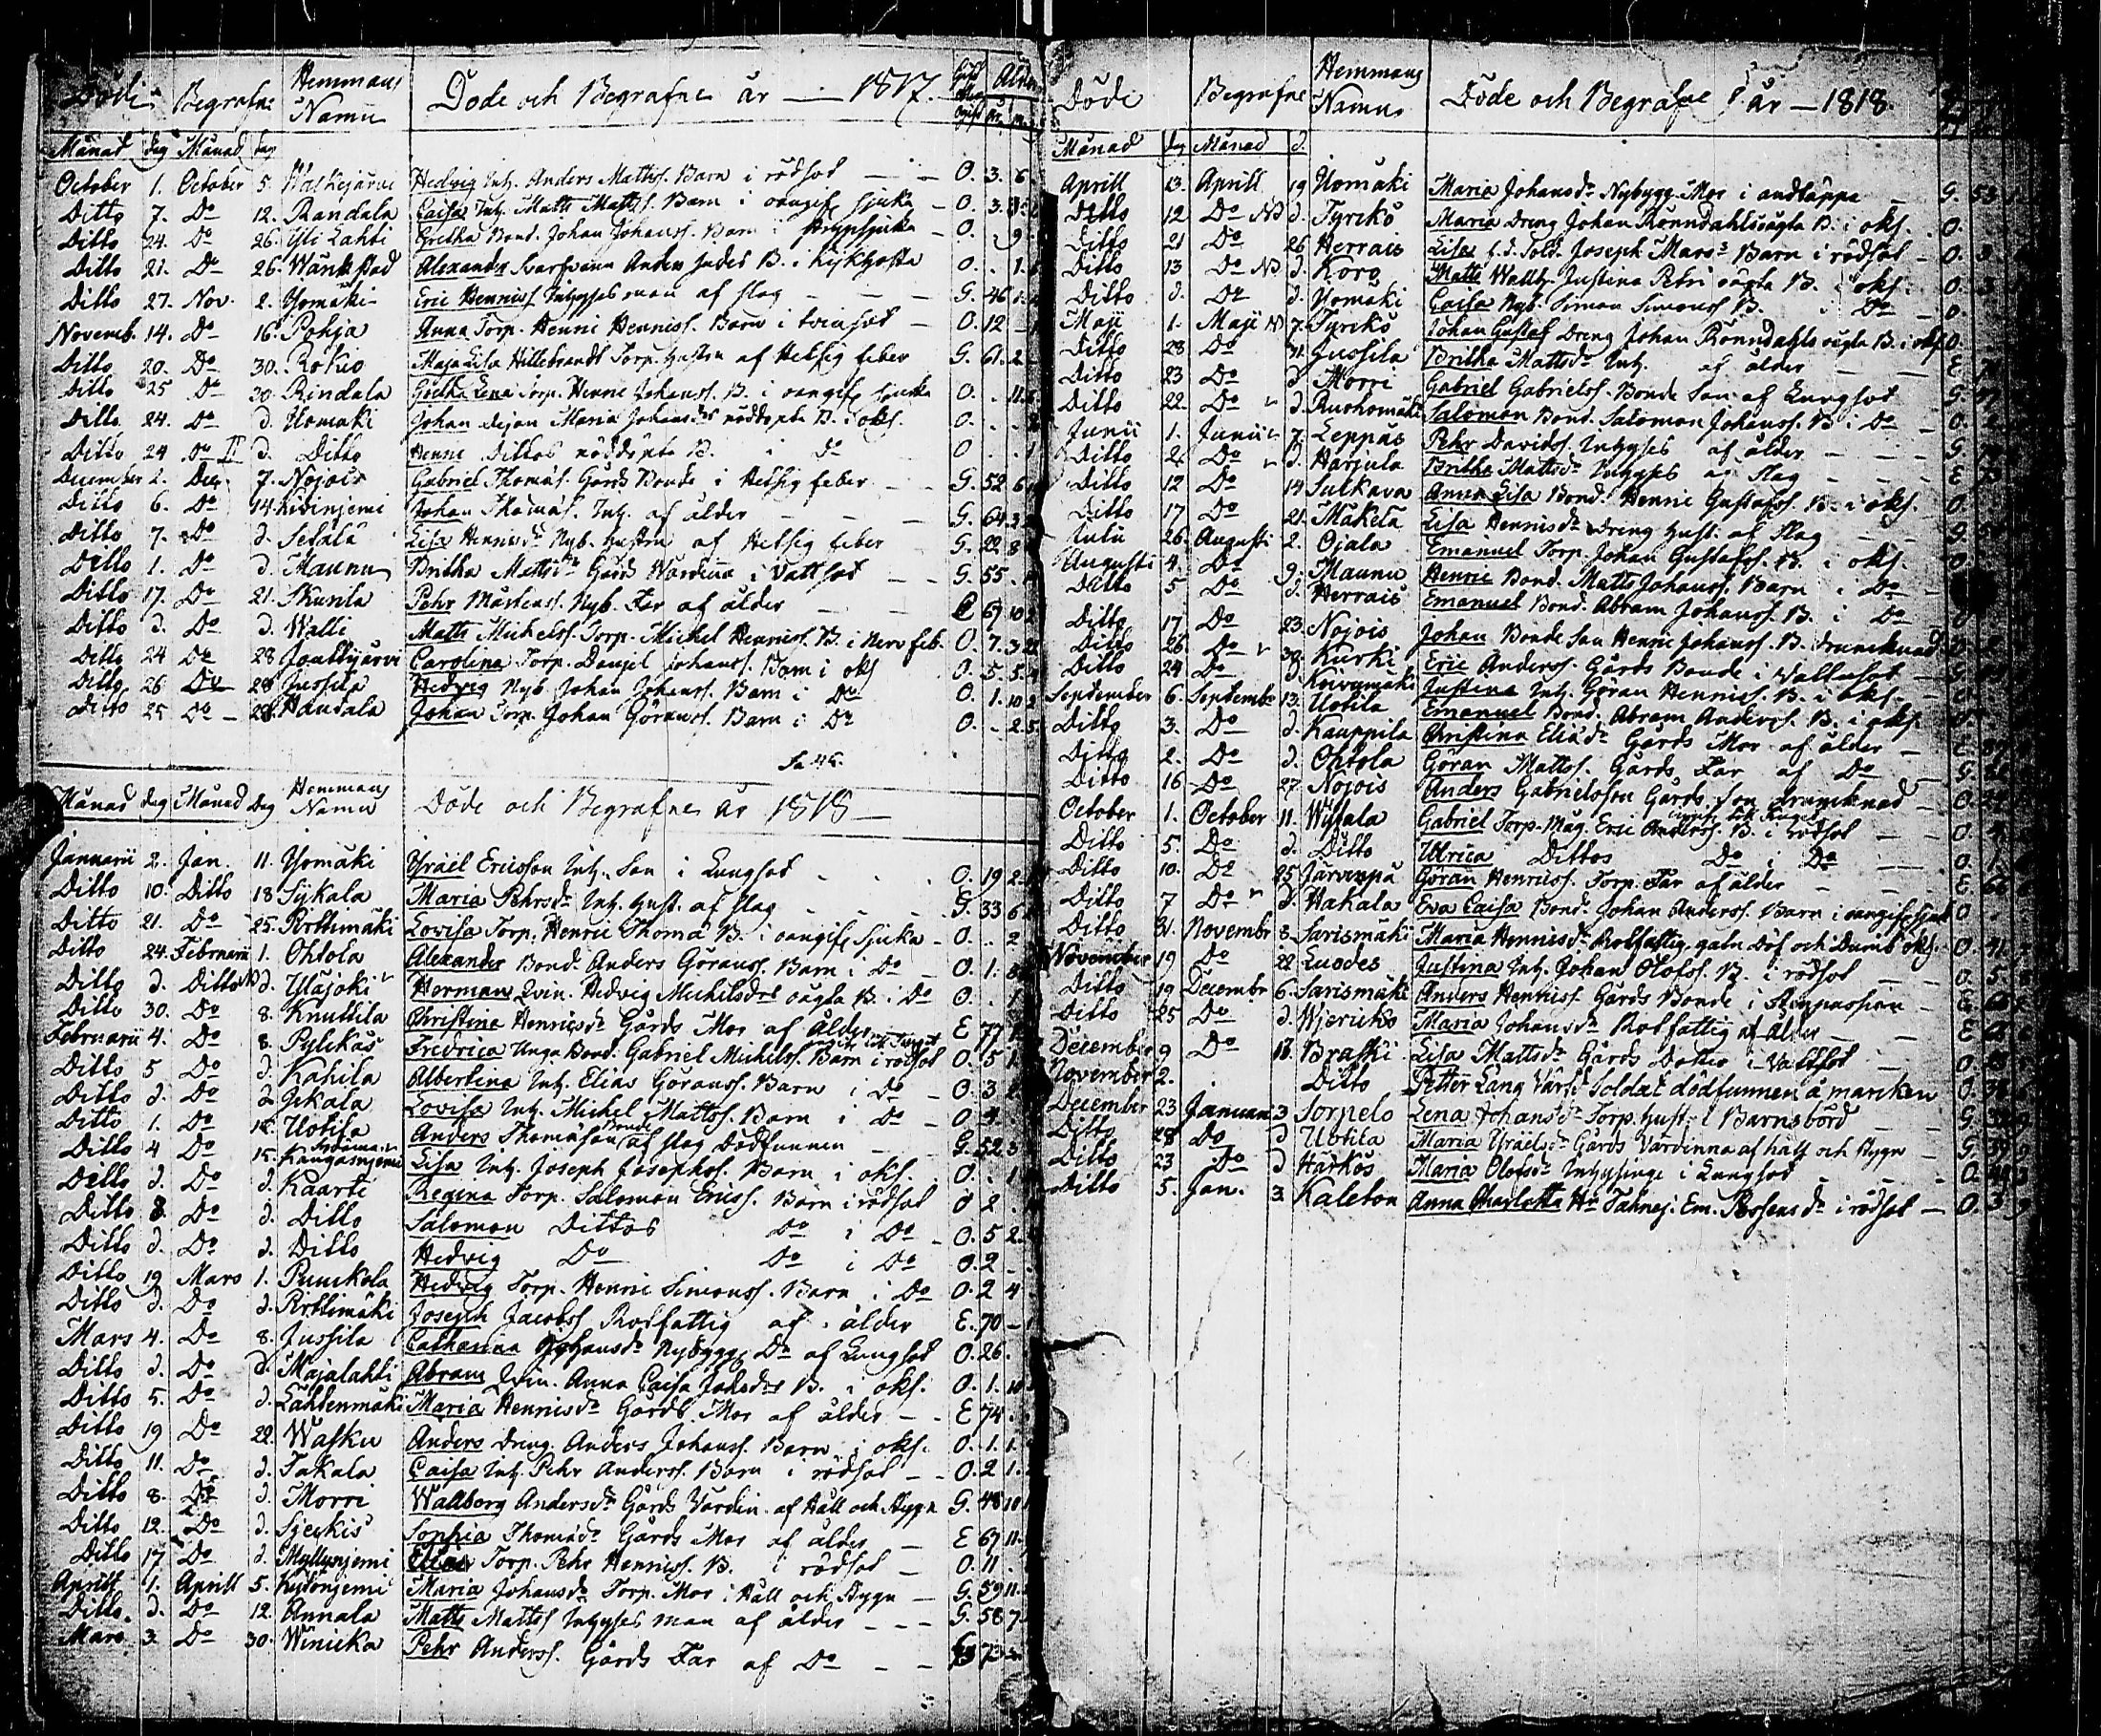 Döde Begrafne Hemmans Namn Döde och Begrafne år — 1817. Ålder
Månad dag Månad dag
October 1. October 5. Walkejärvi Hedvig Inh. Anders Mattss. Barn i rödsot — O. 3. 6
Ditto 7. Do 12. Randala Caisa Inh. Matts Mattss. Barn i oangif. sjuka — O. 3.
Ditto 24. Do 26. Yli Lahti Gretha Bond. Johan Johanss. Barn i strypsjuka — O. . 9.
Ditto 21. Do 26. Alexander Anders B. i kikhosta O. . 1.
Ditto 27. Nov. 2. Yomäki Eric Henriss Inhysesman af slag — G. 46
Novemb. 14. Do 16. Pohja Anna Torp. Henric Henricss. Barn i tvinsot — O. 12 —
Ditto 20. Do 30. Rokio Maja Lisa Hillebrandt Torp. Hustru af Hetsig feber G. 61. 2
Ditto 25 Do 30. Rindala Gretha Lena Torp. Henric Johanss. B. i oangif. sjuka O. . 11.
Ditto 24. Do d. Uomäki Johan Maria Johansdrs nöddöpte B. i oks. O. . .
Ditto 24 Do d. Ditto Henric Dittos nöddöpte B. i Do O . .
December 2. Dec. 7. Nojois Gabriel Thomass. Gårds Bonde i Hetsig feber — G. 52 6
Ditto 6. Do 14. Kidinjemi Johan Thomass. Inh. af ålder — G. 64.
Ditto 7. Do d. Setälä Lisa Henricsdr Nyb. Hustru af Hetsig feber — G. 22 8
Ditto 1. Do d. Maunu Britha Mattsdr Gård Värdina i Vattsot — G. 55.
Ditto 17. Do 21. Skurila Pehr Mårtenss. Nyb. Far af ålder — E 67 10
Ditto d. Do d. Walli Matts Michelss. Torp. Michel Henricss. B. i Nerv feb. O. 7. 3
Ditto 24 Do 28 Jouttijärvi Carolina Torp. Danjel Johanss. Barn i oks O. 5. 5.
Ditto 26 Do 28 Jussila Hedvig Nyb. Johan Johanss. Barn i Do O. 1. 10
Ditto 25 Do 28. Handala Johan Torp. Johan Göranss. Barn i Do O. . 2
Sa 45.
Månad dag Månad Dag Hemmans Namn Döde och Begrafne år 1818 —
Januarii 2. Jan. 11. Yomäki Ysrail Ericsson Inh. Son i Lungsot . . . O. 19 2.
Ditto 10. Ditto 18 Sykala Maria Pehrsdr Inh. Hust. af slag G. 33 6
Ditto 21. Do 25. Perttimäki Lovisa Torp. Henric Thoma B. i oangif. sjuka — O. . 2
Ditto 24. Februarii 1. Ohtola Alexander Bond. Anders Göranss. Barn i Do — O. 1.
Ditto d. Ditto d. Ylajoki Herman Qvin. Hedvig Michelsdrs oägta B. i Do O. . 1
Ditto 30. Do 8. Knuttila Christina Henricsdr Gårds Mor af Ålder E 77
Februarii 4. Do 8. Pylckäs Fredrica Unga Bond. Gabriel Michelss. Barn i rödsot O. 5 1.
Ditto 5 Do d. Kahila Albertina Inh. Elias Göranss. Barn i Do — O. 3
Ditto d. Do d. Jckala Lovisa Inh. Michel Mattss. Barn i Do — O. 4.
Ditto 1. Do 15. Uotila Anders Thomasson Bonde af slag Dödfunnen — G. 52 3
Ditto 4 Do 15. Kangasnjemi Lisa Inh. Joseph Josephss. Barn i oks. O. . 1
Ditto d. Do d. Kaarti Regina Torp. Salomon Ericss. Barn i rödsot O 2 .
Ditto 8. Do d. Ditto Salomon Dittos Do i Do — O. 5 2.
Ditto d. Do d. Ditto Hedvig Do Do i Do O. 2 .
Ditto 19 Mars 1. Punckola Hedvig Torp. Henric Simonss. Barn i Do O. 2 4
Ditto d. Do d. Perttimäki Joseph Jacobss. Rotfattig af ålder E. 70 —
Mars 4. Do 8. Jussila Catharina Johansdr Nybygg. Dr af Lungsot O. 26.
Ditto d. Do d. Majalahti Abram Qvin. Anna Caisa Johsdrs B. i oks. O. 1. 10
Ditto 5. Do d. Lähtenmäki Maria Henricsdr Gårds Mor af ålder — E 74 .
Ditto 19 Do 22. Wasku Anders Dreng. Anders Johanss. Barn i oks. O. 1. 1.
Ditto 11. Do d. Takala Caisa Inh. Pehr Anderss. Barn i rödsot — O. 2 1.
Ditto 8. Do d. Morri Wallborg Andersdr Gårds Värdin. af Håll och Stygn G. 48 10
Ditto 12. Do d. Sjeckis Sophia Thomædr Gårds Mor af ålder — E 67 11.
Ditto 17 Do d. Myllynjemi Elias Torp. Pehr Henricss. B. i rödsot — O. 11 .
Aprill 1. Aprill 5. Kydönjemi Maria Johansdr Torp. Mor i Håll och Stygn — G. 59 11.
Ditto. d. Do 12. Annala Matts Mattss Inhyses man af ålder — G. 56 7
Mars 3. Do 30. Winicka Pehr Anderss. Gårds Far af Do — 73
Döde Begrafne Hemmans Namn Döde och Begrafne år — 1818.
Månad dag Månad d.
Aprill 13. Aprill 19 Uomäki Maria Johansdr Nybygg. Mor i andtäppa — G. 53
Ditto 12 Do d. Tyrckö Maria Dreng Johan Rönndahls oägta B. i oks. O.
Ditto 21 Do 26 Herrais Lisa Sold. Joseph Mars Barn i rödsot — O. 3
Ditto 13 Do d. Korg Matts Wallb. Justina Petri oägta B. i oks. O. 3
Ditto d. Do d. Uomäki Caisa Nyb. Simon Simonss B. i Do — O
Maji 1. Maji 7. Tyrckö Johan Gustaf Dreng Johan Rönndahls oägta B. i oks. O.
Ditto 28 Do 31. Jussila Britha Mattsdr Inh. af ålder — E.
Ditto 23 Do d. Morri Gabriel Gabrielss. Bonde Son af Lungsot — G.
Ditto 22. Do d. Ruohomäki Salomon Bond. Salomon Johanss. B. i Do — O.
Junii 1. Junii 7. Leppäs Pehr Davidss. Inhyses af ålder — G.
Ditto 2. Do d. Harjula Britha Mattsdr Inhyses af Slag — E
Ditto 12 Do 14 Sulkava Anna Lisa Bond. Henric Gustafss. B. i oks. O.
Ditto 17 Do 21. Mäkelä Lisa Henricsdr Dreng Hust. af Slag — G.
Julii 26. Augusti 2. Ojala Emanuel Torp. Johan Gustafss. B. i oks. O
Augusti 4. Do 9. Maunu Henric Bond. Matts Johanss. Barn i Do
Ditto 5 Do d. Herrais Emanuel Bond. Abram Johanss. B. i Do
Ditto 17 Do 23. Nojois Johan Bonde Son Henric Johanss. B. Drunknad
Ditto 26. Do 30. Kurki Eric Anderss. Gårds Bonde i Vattusot —
Ditto 24 Do d. Koivumäki Justina Inh. Göran Henricss. B. i oks.
September 6. Septembr 13. Uotila Emanuel Bond. Abram Anderss. B. i oks.
Ditto 3. Do d. Kauppila Christina Eliædr Gårds Mor af ålder — E.
Ditto 2. Do d. Ohtola Göran Mattss. Gårds Far af Do — G.
Ditto 16 Do 27 Nojois Anders Gabrielsson Gårds Son drunknad — O.
October 1. October 11. Wytala Gabriel Torp. Måg. Eric Anderss. B. i rödsot — O.
Ditto 5. Do d. Ditto Ulrica Dittos Do i Do — O. 1
Ditto 10. Do 25 Järvenpä Göran Henricss. Torp. Far af ålder — E. 66
Ditto 7 Do d. Hakala Eva Caisa Bond. Johan Anderss. Barn i oangif. sjuk. O
Ditto 31. Novembr 8. Sarismäki Maria Henricsdr Rotfattig, galn Döf och Dumb oks. O. 41
November 19 Do 22 Luodes Justina Inh. Johan Olofss. B. i rödsot — O. 5
Ditto 19 Decembr 6. Sarismäki Anders Henricss. Gårds Bonde i Stenpassion — G.
Ditto 25 Do d. Wjericko Maria Johansdr Rotfattig af Ålder — E
December 9 Do Braski Lisa Mattsdr Gårds Dotter i Vattsot — O.
November 2. Ditto Petter Lång Vårf. Soldat dödfunnen å marcken O.
December 23 Januari 3 Sorpelo Lena Johansdr Torp. Hust. i Barnsbörd — G.
Ditto 28 Do d Uotila Maria Ysraelsdr Gårds Värdinna af håll och stygn — G.
Ditto 23 Do d Härkös Maria Olofsdr Inhysinge i Lungsot — O.
Ditto 5. Jan. 3. Kaleton Anna Charlotta Em. i rödsot — O. 3